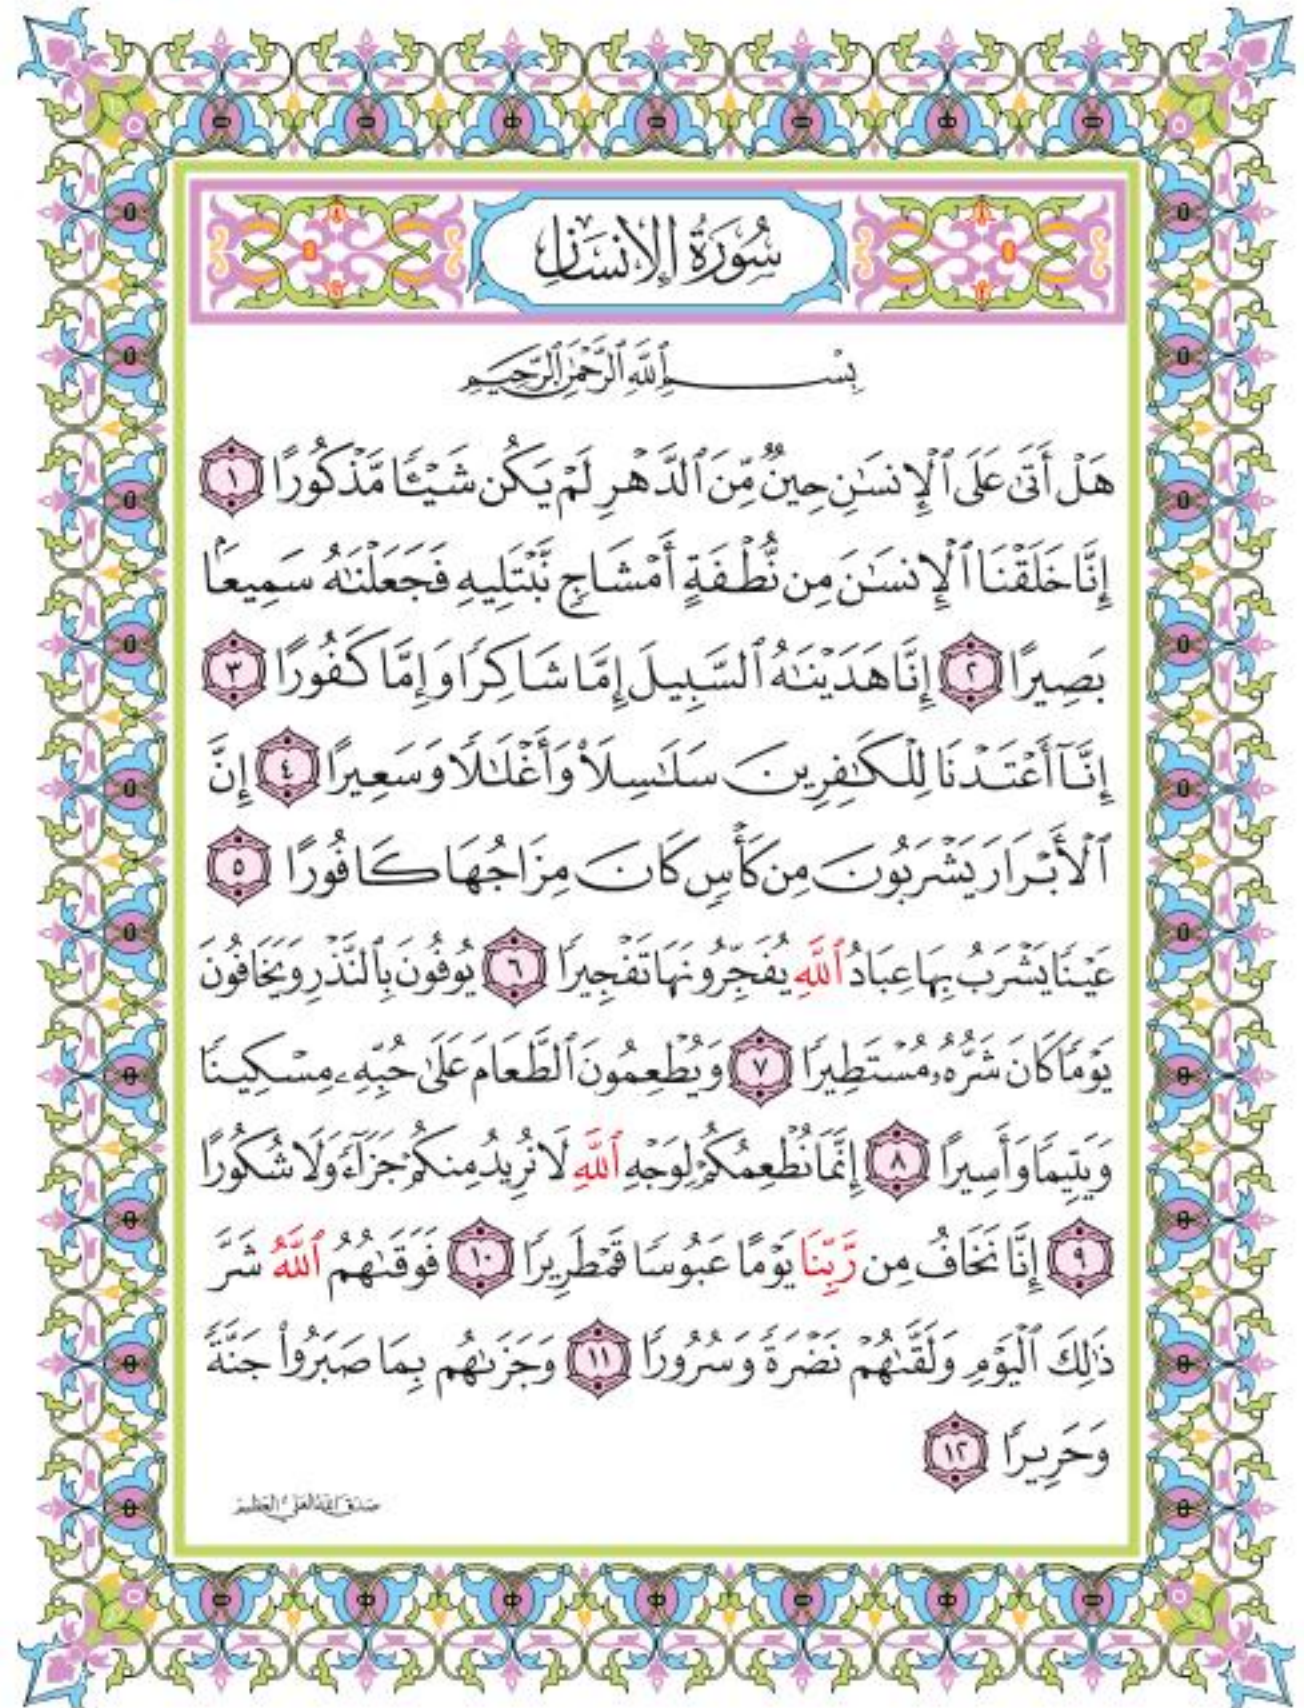 سُورَةُ الإِنسَانِ
بِسْمِ ٱللَّهِ ٱلرَّحْمَٰنِ ٱلرَّحِيمِ
هَلْ أَتَىٰ عَلَى ٱلْإِنسَٰنِ حِينٌ مِّنَ ٱلدَّهْرِ لَمْ يَكُن شَيْـًٔا مَّذْكُورًا ١
إِنَّا خَلَقْنَا ٱلْإِنسَٰنَ مِن نُّطْفَةٍ أَمْشَاجٍ نَّبْتَلِيهِ فَجَعَلْنَٰهُ سَمِيعًۢا
بَصِيرًا ٢ إِنَّا هَدَيْنَٰهُ ٱلسَّبِيلَ إِمَّا شَاكِرًا وَإِمَّا كَفُورًا ٣
إِنَّآ أَعْتَدْنَا لِلْكَٰفِرِينَ سَلَٰسِلَا۟ وَأَغْلَٰلًا وَسَعِيرًا ٤ إِنَّ
ٱلْأَبْرَارَ يَشْرَبُونَ مِن كَأْسٍ كَانَ مِزَاجُهَا كَافُورًا ٥
عَيْنًا يَشْرَبُ بِهَا عِبَادُ ٱللَّهِ يُفَجِّرُونَهَا تَفْجِيرًا ٦ يُوفُونَ بِٱلنَّذْرِ وَيَخَافُونَ
يَوْمًا كَانَ شَرُّهُۥ مُسْتَطِيرًا ٧ وَيُطْعِمُونَ ٱلطَّعَامَ عَلَىٰ حُبِّهِۦ مِسْكِينًا
وَيَتِيمًا وَأَسِيرًا ٨ إِنَّمَا نُطْعِمُكُمْ لِوَجْهِ ٱللَّهِ لَا نُرِيدُ مِنكُمْ جَزَآءً وَلَا شُكُورًا
٩ إِنَّا نَخَافُ مِن رَّبِّنَا يَوْمًا عَبُوسًا قَمْطَرِيرًا ١٠ فَوَقَىٰهُمُ ٱللَّهُ شَرَّ
ذَٰلِكَ ٱلْيَوْمِ وَلَقَّىٰهُمْ نَضْرَةً وَسُرُورًا ١١ وَجَزَىٰهُم بِمَا صَبَرُوا۟ جَنَّةً
وَحَرِيرًا ١٢
صدق الله العلي العظيم